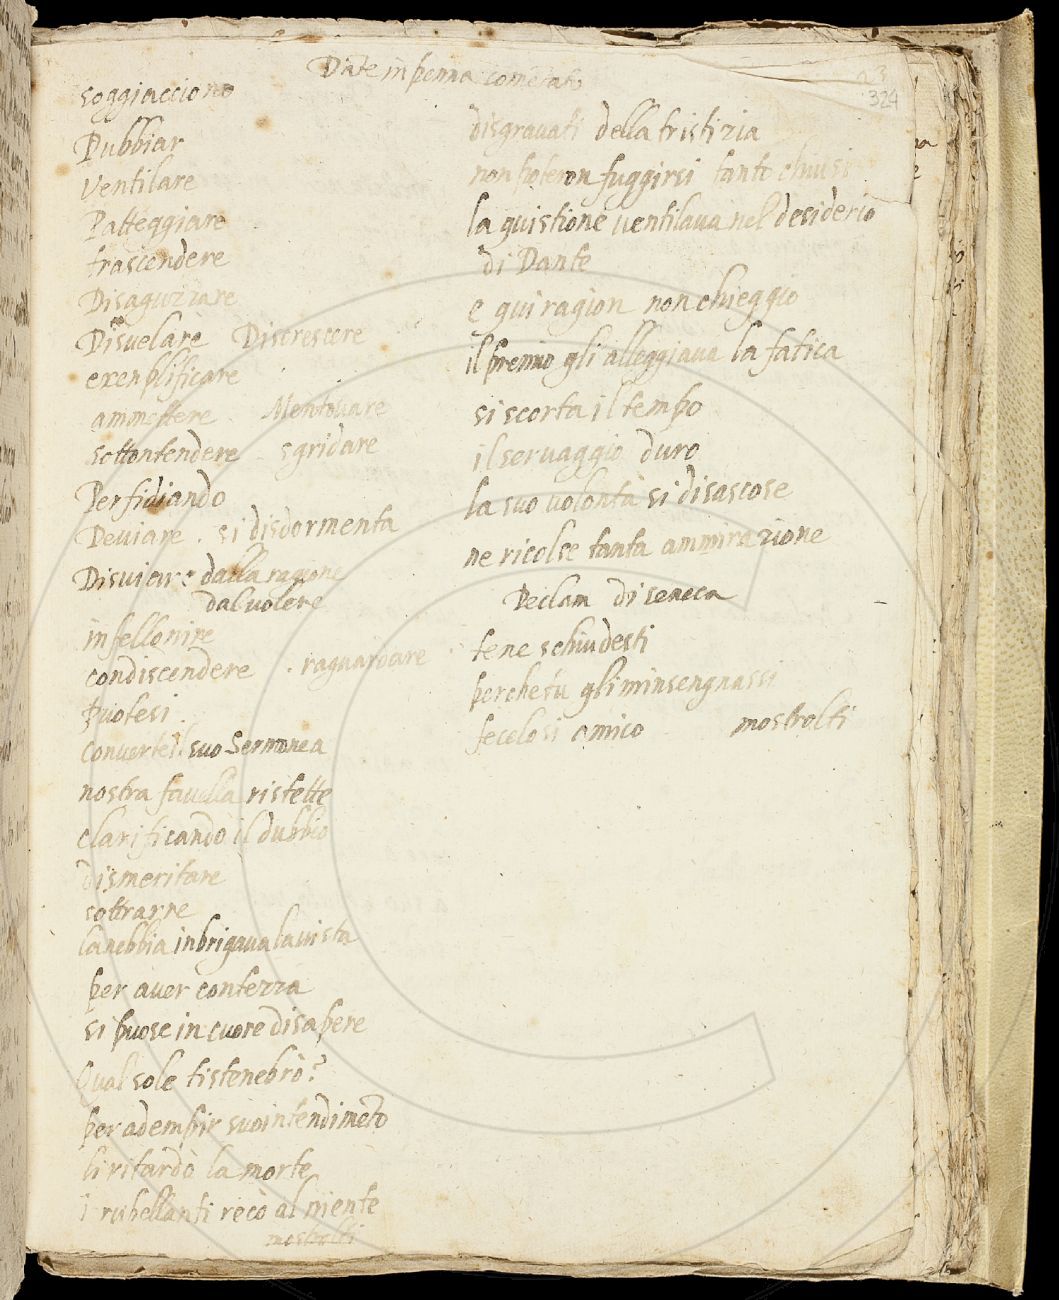 Date in penna
324
soggiacciono
Dubbiar
ventilare
Patteggiare
trascendere
Disaguzzare
Disvelare Discrescere
exenplificare
ammettere Mentovare
sottontendere sgridare
Perfidiando
Deviare . si disdormenta
Disviare dalla ragione
dal volere
infellonire
condiscendere . raguardare
puotesi .
suo Sermone a
nostra favella ristette
clarificando il dubbio
dismeritare
sottrarre
la nebbia inbrigava la vista
per aver contezza
si puose in cuore di sapere
Qual sole ti stenebrò?
per adempir suo intendimeto
li ritardò la morte
i rubellanti recò al niente
mostrolti
disgravati della tristizia
non poteron fuggirsi tanto chiusi
la quistione ventilava nel desiderio
di Dante
e qui ragion non chieggio
il premio gli alleggiava la fatica
si scorta il tempo
il servaggio duro
la suo volontà si disascose
ne ricolse tanta ammirazione
Declam di seneca
te ne schiudesti
gli minsengnassi
fecelosi amico mostrolti